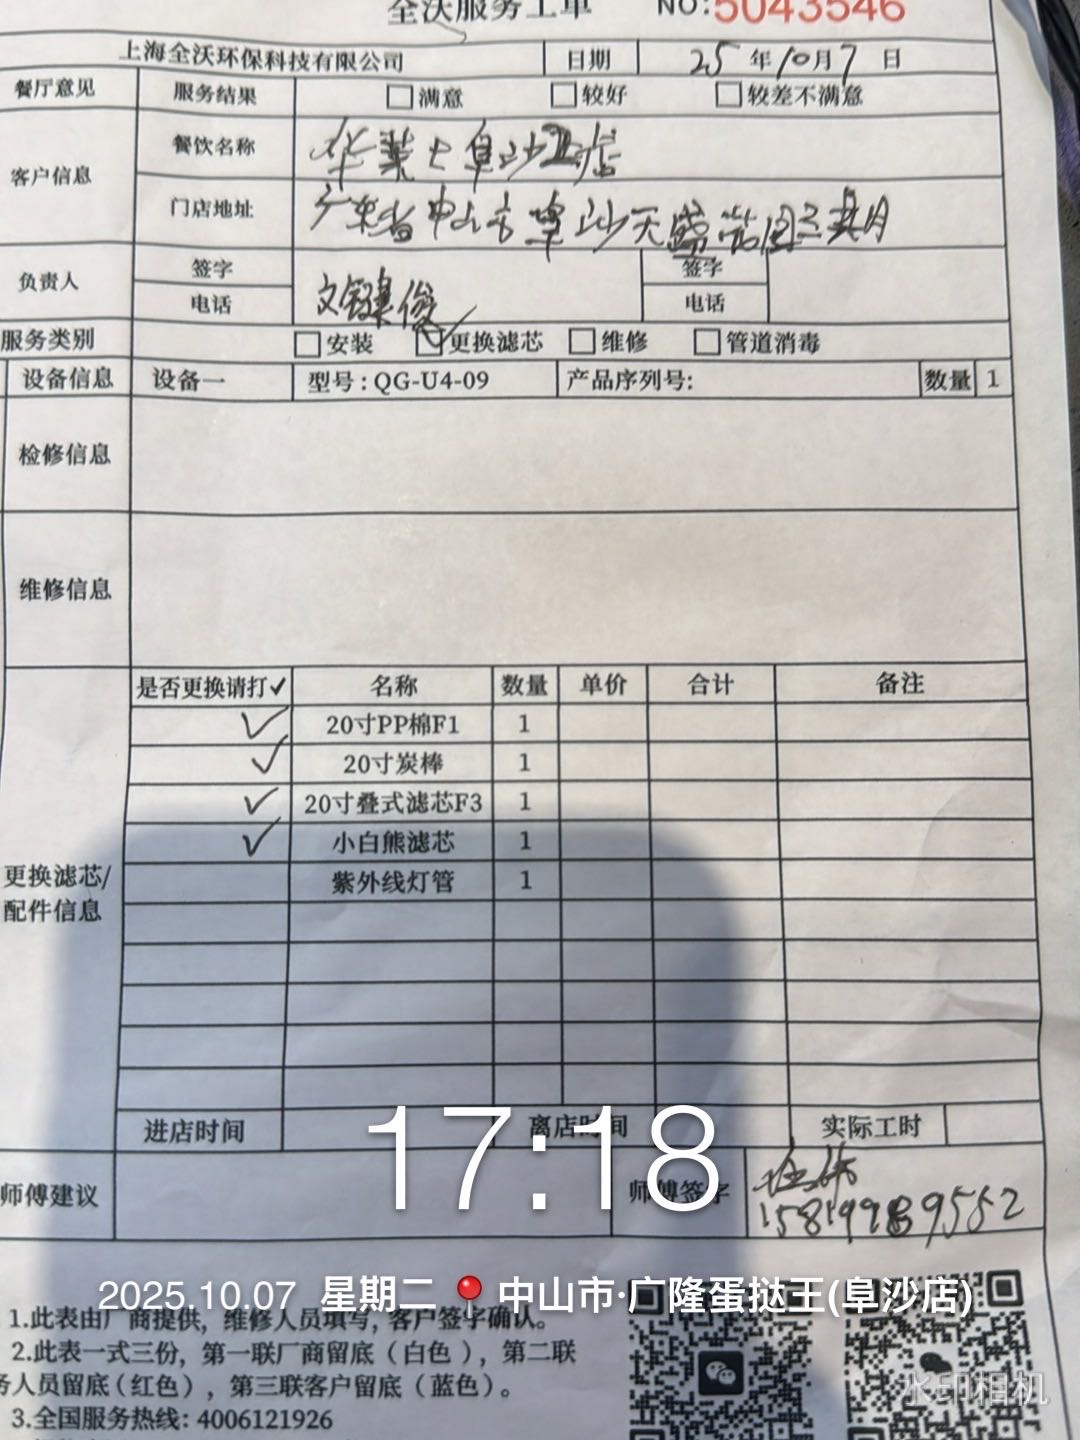 全沃服务工单 NO:5043546
上海全沃环保科技有限公司 日期 25年10月7日
餐厅意见 服务结果 满意 较好 较差不满意
客户信息 餐饮名称 华莱士阜沙店
门店地址 广东省中山市阜沙天盛花园三
负责人 签字 签字
电话 文键俊 电话
服务类别 安装 更换滤芯 维修 管道消毒
设备信息 设备一 型号:QG-U4-09 产品序列号: 数量 1
检修信息
维修信息
是否更换请打✓ 名称 数量 单价 合计 备注
✓ 20寸PP棉F1 1
✓ 20寸炭棒 1
✓ 20寸叠式滤芯F3 1
✓ 小白熊滤芯 1
紫外线灯管 1
更换滤芯/
配件信息
进店时间 离店时间 实际工时
17:18
师傅建议 师傅签字
2025.10.07 星期二 中山市·广隆蛋挞王(阜沙店)
1.此表由厂商提供，维修人员填写，客户签字确认。
2.此表一式三份，第一联厂商留底（白色），第二联
务人员留底（红色），第三联客户留底（蓝色）。
水印相机
3.全国服务热线: 4006121926